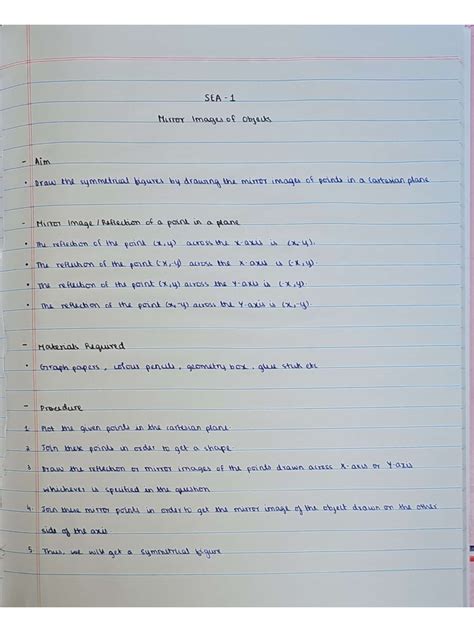 SEA - 1
Mirror Images of Objects
- Aim
• Draw the symmetrical figures by drawing the mirror images of points in a cartesian plane
- Mirror Image / Reflection of a point in a plane
• The reflection of the point (x,y) across the x-axis is (x,-y).
• The reflection of the point (x,-y) across the x-axis is (-x,y).
• The reflection of the point (x,y) across the Y-axis is (-x,y).
• The reflection of the point (x,-y) across the Y-axis is (-x,-y).
- Materials Required
• Graph papers, colour pencils, geometry box, glue stick etc
- Procedure
1. Plot the given points in the cartesian plane
2. Join these points in order to get a shape
3. Draw the reflection or mirror images of the points drawn across X-axis or Y-axis
whichever is specified in the question
4. Join these mirror points in order to get the mirror image of the object drawn on the other
side of the axis
5. Thus, we will get a symmetrical figure